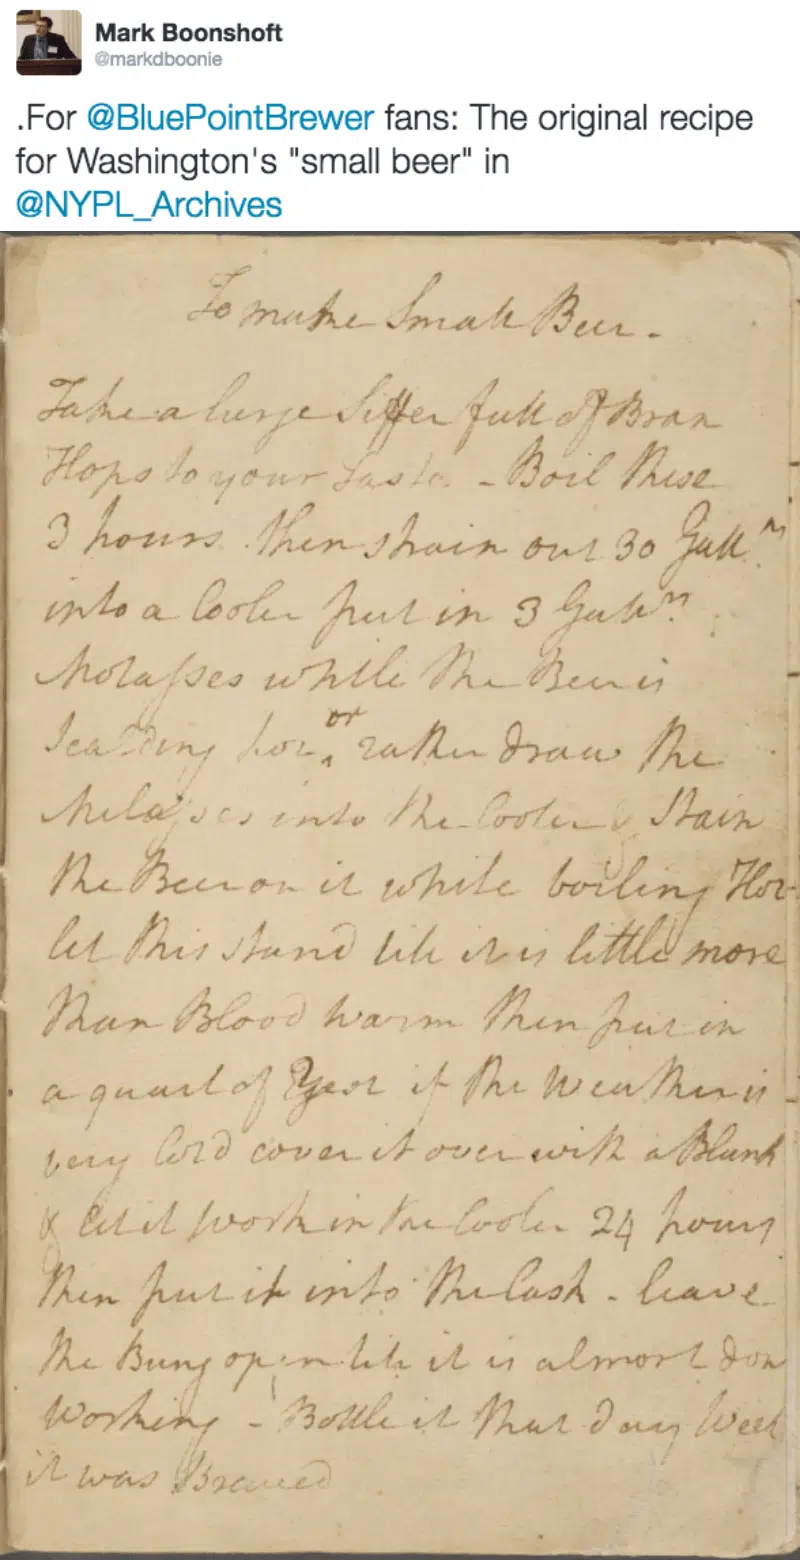 Mark Boonshoft
@markdboonie
.For @BluePointBrewer fans: The original recipe
for Washington's "small beer" in
@NYPL_Archives
To make Small Beer -
Take a large Siffer full of Bran
Hops to your Taste - Boil these
3 hours. then strain out 30 Gall.ns
into a Cooler put in 3 Gall.ns
Molasses while the Beer is
Scalding hot or rather draw the
Molasses into the Cooler & Stain
the Beer on it while boiling Hot
let this stand till it is little more
than Blood warm then put in
a quart of Yest if the weather is
very Cold cover it over with a Blank
& let it work in the Cooler 24 hours
then put it into the Cask - leave
the Bung open till it is almost don
working - Bottle it that day Week
it was Brewed